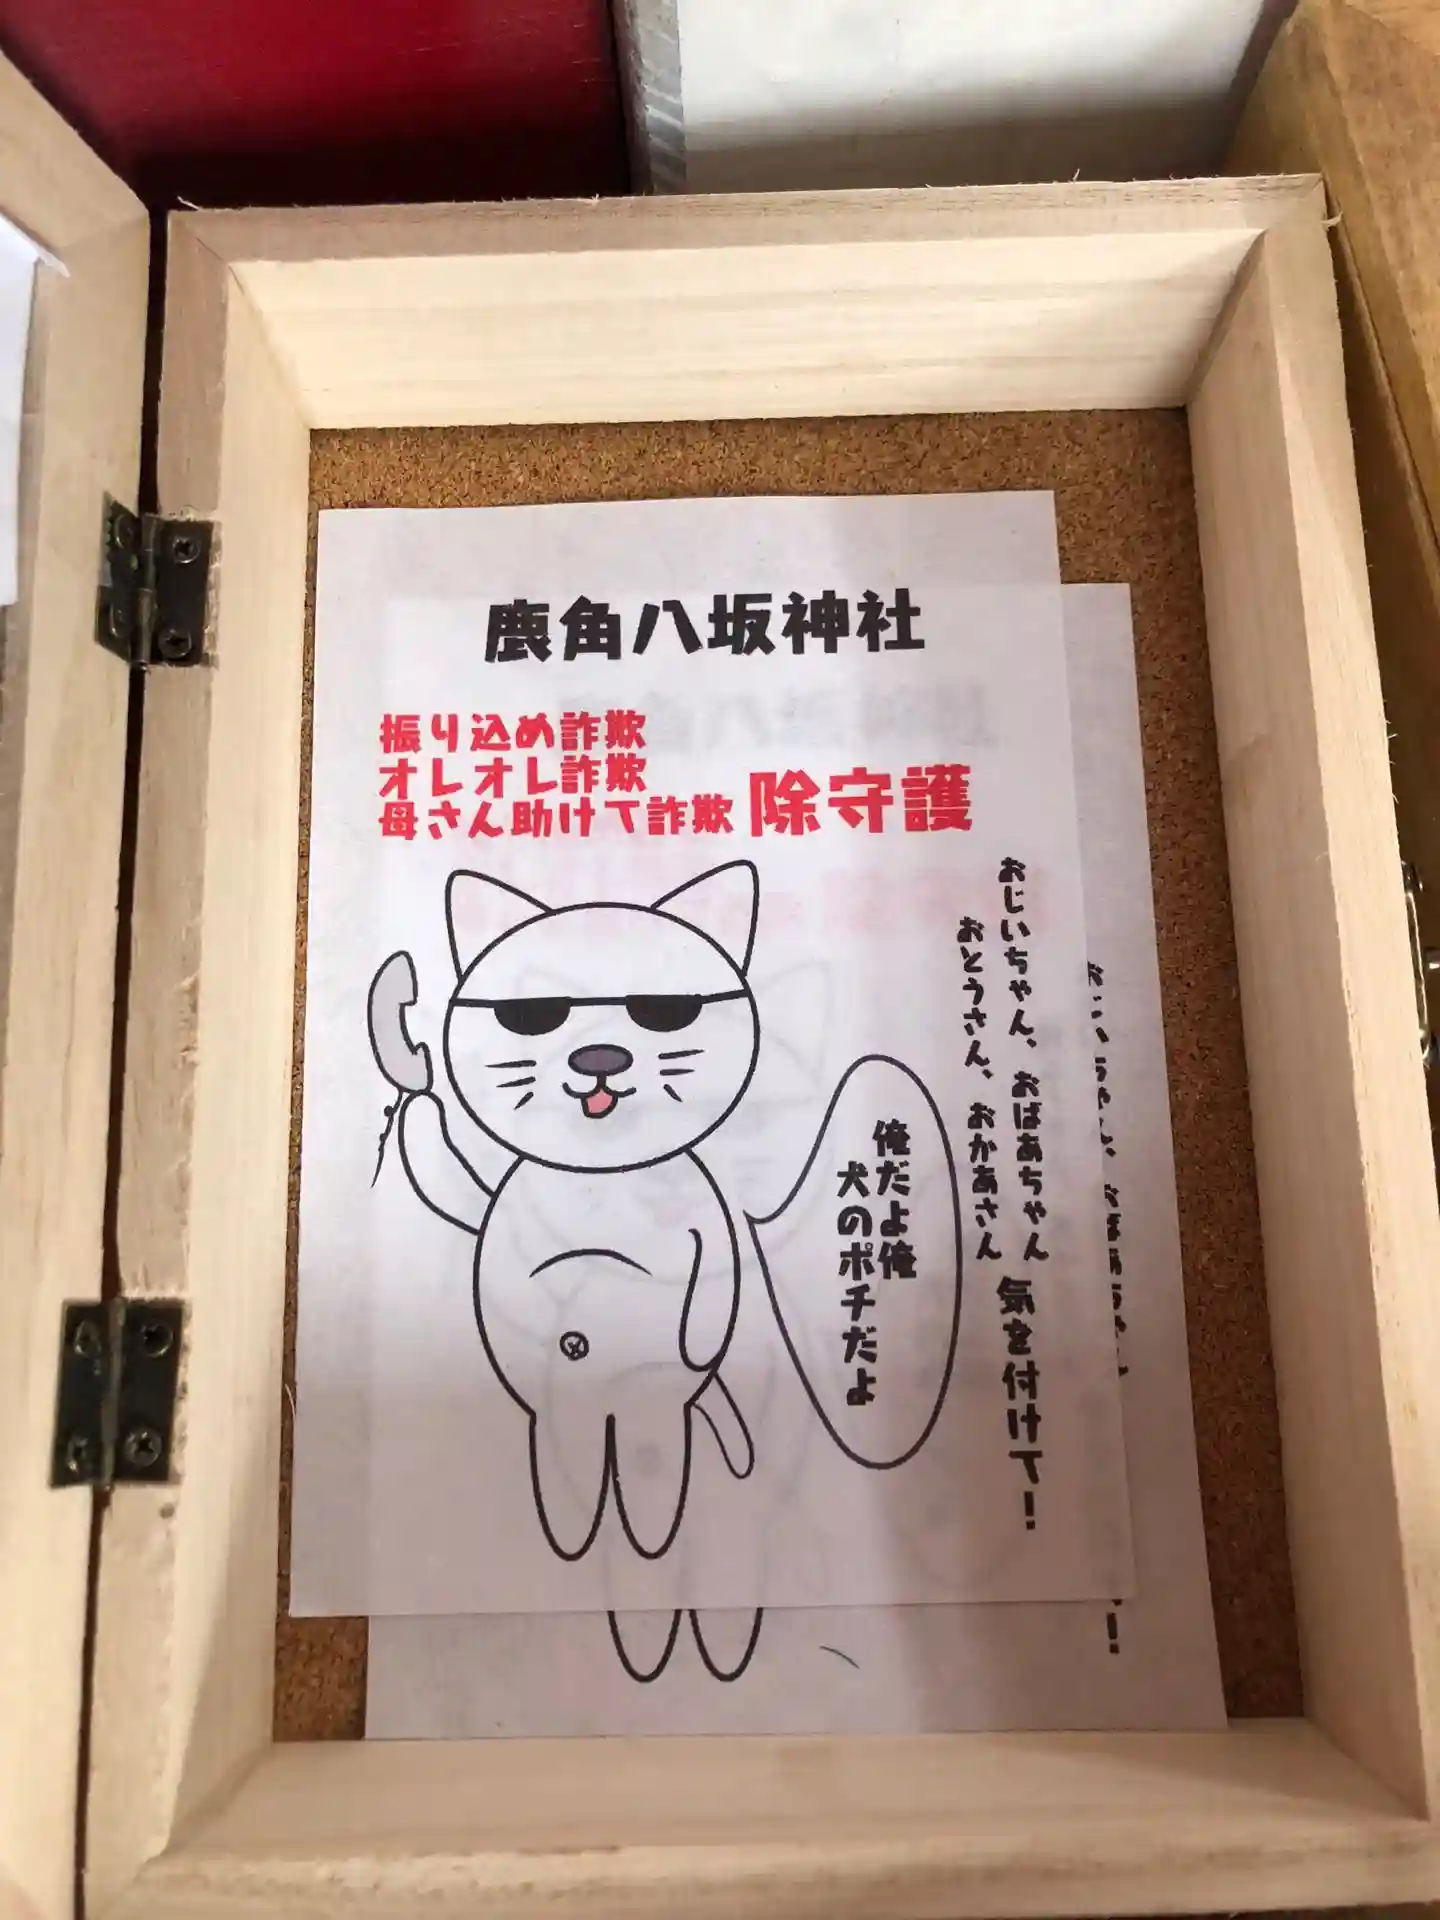 鹿角八坂神社
振り込め詐欺
オレオレ詐欺
母さん助けて詐欺 除守護
おじいちゃん、おばあちゃん
おとうさん、おかあさん
気を付けて！
俺だよ俺
犬のポチだよ